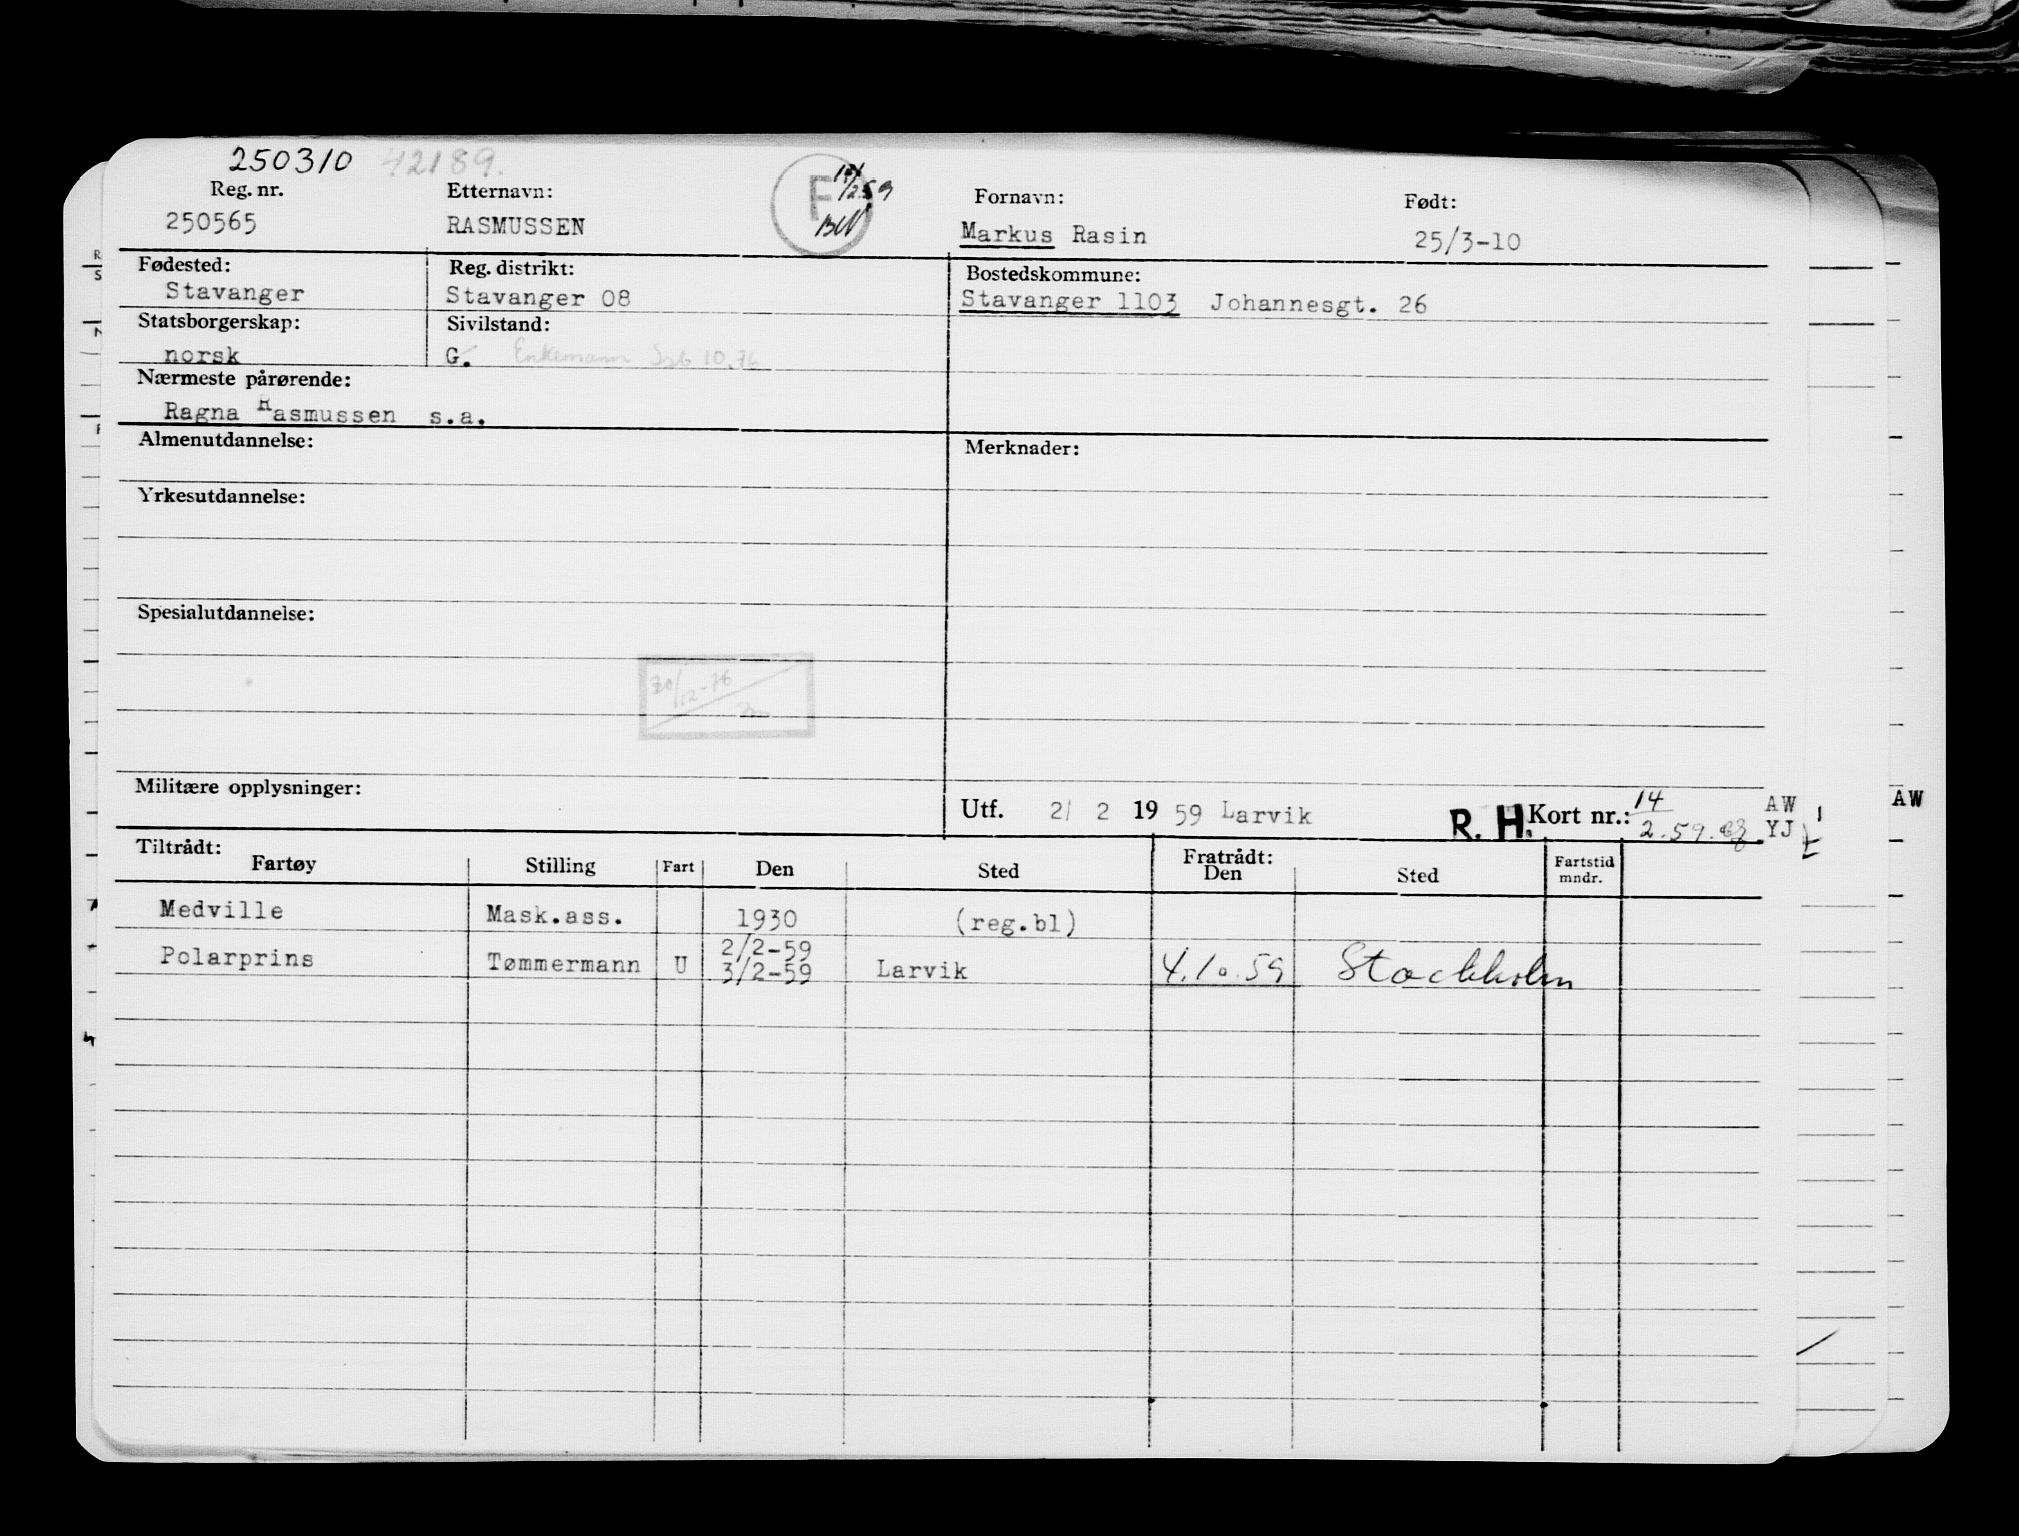 250310 42189.
Reg. nr. Etternavn: Fornavn: Født:
250565 RASMUSSEN Markus Rasin 25/3-10
F
Fødested: Reg. distrikt: Bostedskommune:
Stavanger Stavanger 08 Stavanger 1103 Johannesgt. 26
Statsborgerskap: Sivilstand:
norsk G. Enkemann
Nærmeste pårørende:
Ragna Rasmussen s.a.
Almenutdannelse: Merknader:
Yrkesutdannelse:
Spesialutdannelse:
20/12-76
Militære opplysninger:
Utf. 2/ 2 19 59 Larvik R. H. Kort nr.: 14 AW AW
2.59. YJ
Tiltrådt: Fratrådt:
Fartøy Stilling Fart Den Sted Den Sted Fartstid mndr.
Medville Mask.ass. 1930 (reg.bl)
2/2-59
Polarprins Tømmermann U 3/2-59 Larvik 4.10.59 Stockholm